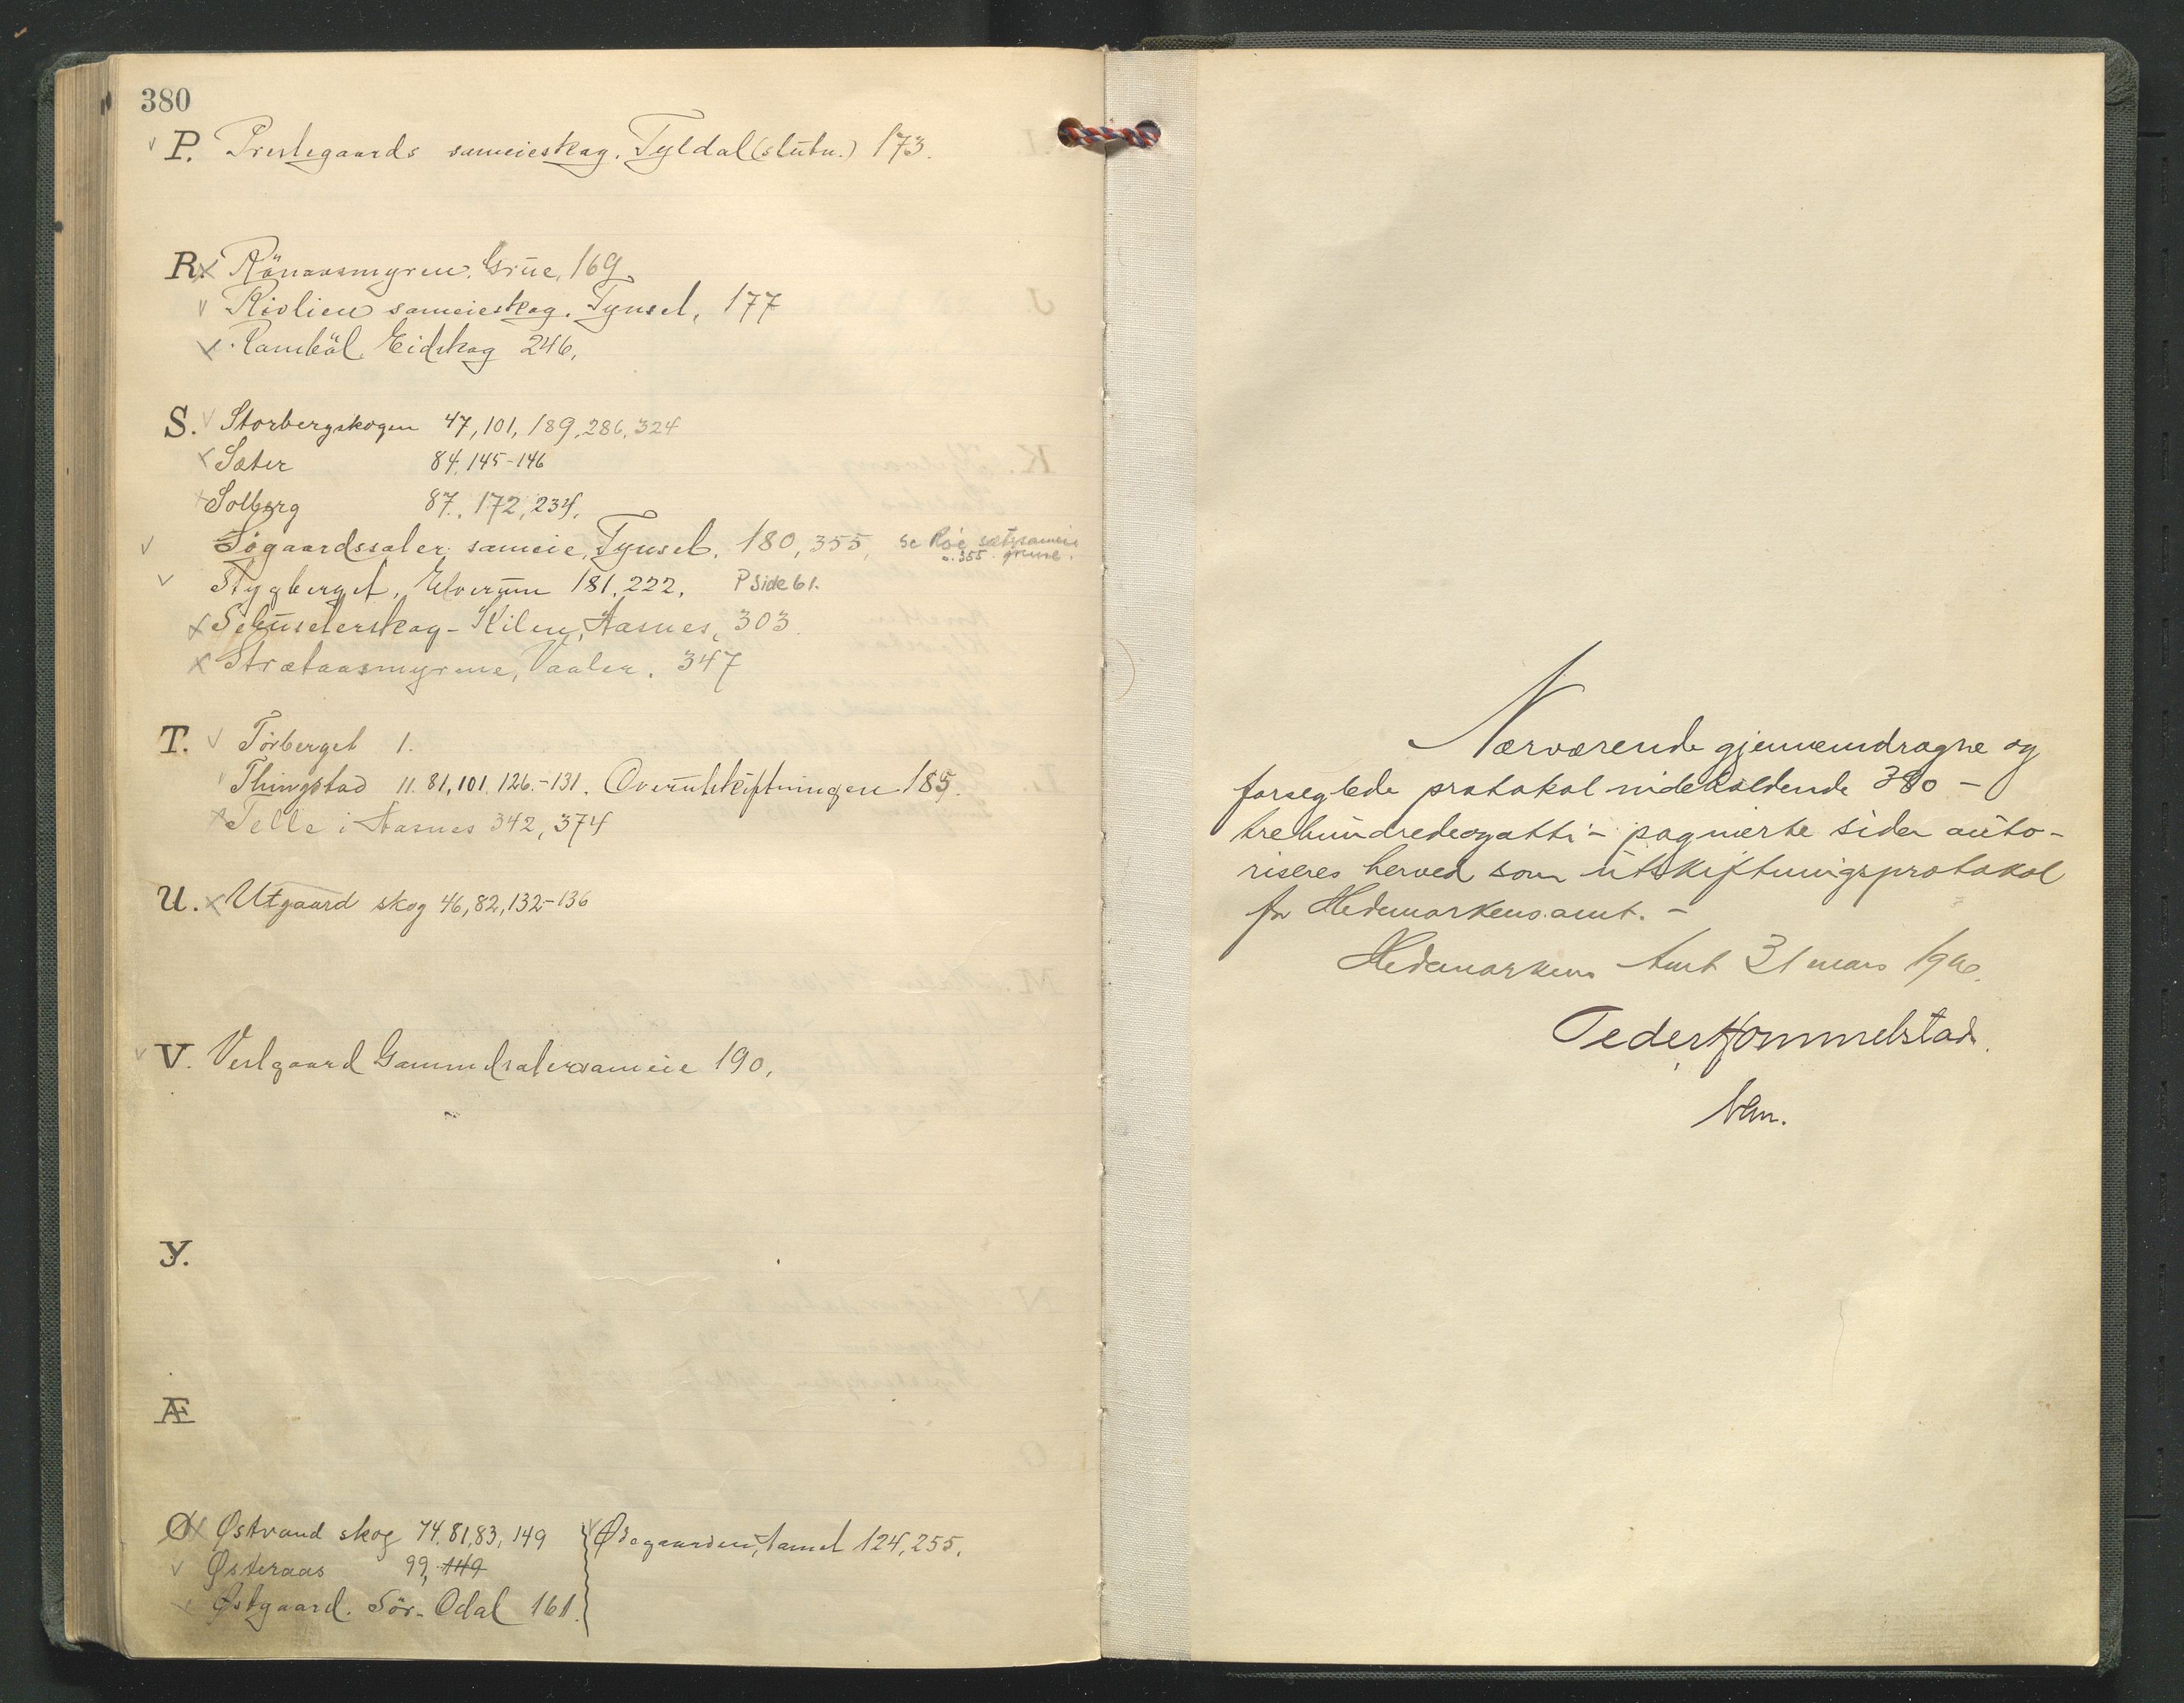 380
P. Prestegaards sameieskog. Tyldal (slutn.) 173.
R. Rönaasmyren. Grue, 169.
Rivlien sameieskog. Tynset, 177
Rambäl. Eidskog 246.
S. Storbergskogen 47, 101, 189, 286, 324
Sæter 84, 145-146
Solberg 87., 172, 234.
Søgaardssæter sameie, Tynset. 180, 355, se Röe sætersameie
s. 355 grense.
Stygberget, Elverum 181, 222. P Side 61.
Seküsæterskog - Kilen, Aasnes, 303
Strætaasmyrene, Vaaler. 347
T. Törberget 1.
Thingstad 11. 81, 101, 126.-131. Overutskiftningen 185.
Telle i Aasnes 342, 374
U. Utgaard skog 46, 82, 132-136
V. Vestgaard Gammelsætersameie 190.
Y.
Æ
Ø Østvand skog 74, 81, 83, 149 Ødegaarden, Aamot 124, 255.
Østeraas 99, 149
Østgaard. Sör-Odal 161.
Nærværende gjennemdragne og
forseglede protokol indeholdende 380 -
trehundredeogatti - paginerte sider auto-
riseres herved som utskiftningsprotokol
for Hedemarkens amt. -
Hedemarkens Amt 31 mars 1906.
Peder Hommelstad.